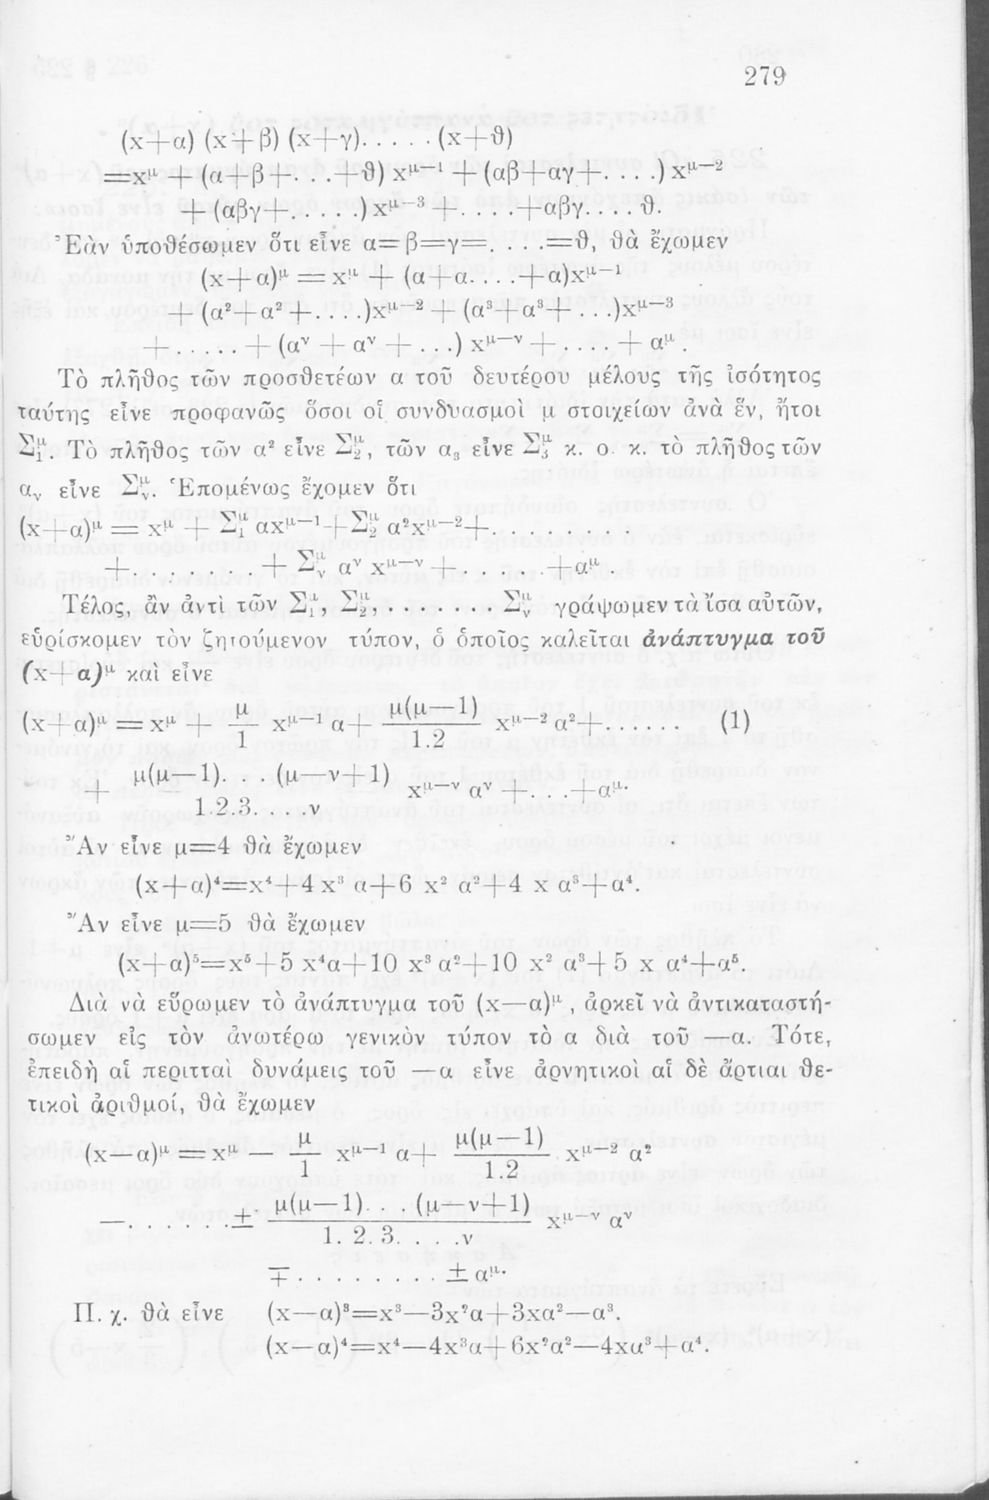 279
(x+α) (x+β) (x+γ)......(x+ϑ)
=xᵘ + (α+β+....+ϑ) xᵘ⁻¹ + (αβ+αγ+....) xᵘ⁻²
+ (αβγ+......) xᵘ⁻³ +....+αβγ....ϑ.
Ἐὰν ὑποθέσωμεν ὅτι εἶνε α=β=γ=.....=ϑ, θὰ ἔχωμεν
(x+α)ᵘ = xᵘ + (α+α....+α)xᵘ⁻¹
+ (α²+α²+....)xᵘ⁻² + (α³+α³+...)xᵘ⁻³
+...... + (αᵛ + αᵛ + ...) xᵘ⁻ᵛ + .... + αᵘ.
Τὸ πλῆθος τῶν προσθετέων α τοῦ δευτέρου μέλους τῆς ἰσότητος
ταύτης εἶνε προφανῶς ὅσοι οἱ συνδυασμοὶ μ στοιχείων ἀνὰ ἕν, ἤτοι
Σ₁ᵘ. Τὸ πλῆθος τῶν α² εἶνε Σ₂ᵘ, τῶν α₃ εἶνε Σ₃ᵘ κ. ο. κ. τὸ πλῆθος τῶν
αᵥ εἶνε Σᵥᵘ. Ἑπομένως ἔχομεν ὅτι
(x+α)ᵘ = xᵘ + Σ₁ᵘ αxᵘ⁻¹+Σ₂ᵘ α²xᵘ⁻²+.........
+....... + Σᵥᵘ αᵛ xᵘ⁻ᵛ +......+αᵘ.
Τέλος, ἂν ἀντὶ τῶν Σ₁ᵘ, Σ₂ᵘ,....... Σᵥᵘ γράψωμεν τὰ ἴσα αὐτῶν,
εὑρίσκομεν τὸν ζητούμενον τύπον, ὁ ὁποῖος καλεῖται ἀνάπτυγμα τοῦ
(x+α)ᵘ καὶ εἶνε
(x+α)ᵘ = xᵘ + μ/1 xᵘ⁻¹ α+ μ(μ—1)/1.2 xᵘ⁻² α²+.... (1)
+ μ(μ—1)....(μ—ν+1)/1.2.3.....ν xᵘ⁻ᵛ αᵛ +....+αᵘ.
Ἂν εἶνε μ=4 θὰ ἔχωμεν
(x+α)⁴=x⁴+4 x³ α+6 x² α²+4 x α³+α⁴.
Ἂν εἶνε μ=5 θὰ ἔχωμεν
(x+α)⁵=x⁵+5 x⁴α+10 x³ α²+10 x² α³+5 x α⁴+α⁵.
Διὰ νὰ εὕρωμεν τὸ ἀνάπτυγμα τοῦ (x—α)ᵘ , ἀρκεῖ νὰ ἀντικαταστή-
σωμεν εἰς τὸν ἀνωτέρω γενικὸν τύπον τὸ α διὰ τοῦ —α. Τότε,
ἐπειδὴ αἱ περιτταὶ δυνάμεις τοῦ —α εἶνε ἀρνητικοὶ αἱ δὲ ἄρτιαι θε-
τικοὶ ἀριθμοί, θὰ ἔχωμεν
(x—α)ᵘ = xᵘ — μ/1 xᵘ⁻¹ α+ μ(μ—1)/1.2 . xᵘ⁻² α²
—.......± μ(μ—1)....(μ—ν+1)/1. 2. 3.....ν xᵘ⁻ᵛ αᵛ
∓.........± αᵘ.
Π. χ. θὰ εἶνε (x—α)³=x³—3x²α+3xα²—α³.
(x—α)⁴=x⁴—4x³α+6x²α²—4xα³+α⁴.